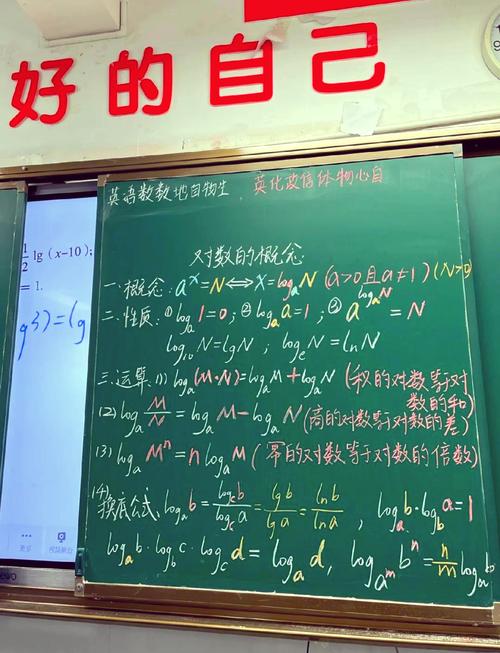 好的自己
英语数数地自物生 英化政信体物心自
对数的概念
一.概念:aˣ=N⇔x=logₐN (a>0且a≠1)(N>0)
二.性质:①logₐ1=0;②logₐa=1;③a^(logₐN)=N
log₁₀N=lgN;logₑN=lnN
三.运算:(1)logₐ(M·N)=logₐM+logₐN(积的对数等于对数的和)
(2)logₐ(M/N)=logₐM-logₐN(商的对数等于对数的差)
(3)logₐMⁿ=nlogₐM(幂的对数等于对数的倍数)
(4)换底公式:logₐb=log_c b/log_c a=lgb/lga=lnb/lna,logₐb·log_b a=1
logₐb·log_b c·log_c d=logₐd,log_(a^m) bⁿ=n/m logₐb
1/2 lg(x-10);
=1.
g3)=lg
更多